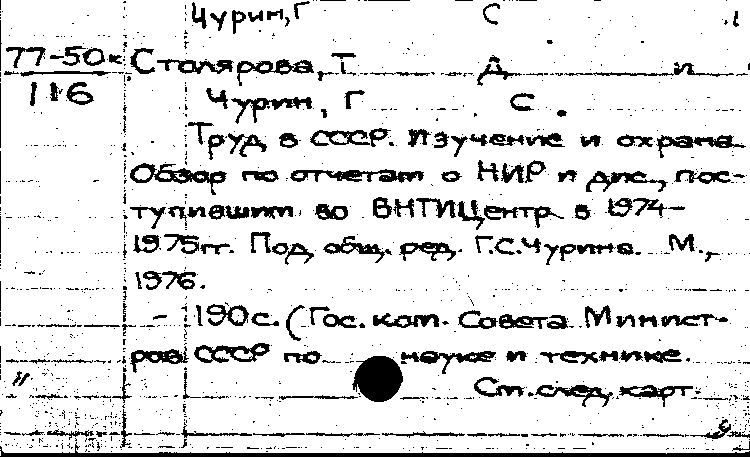 Чурин, Г С
77-50к Столярова, Т Д и
116 Чурин, Г С.
Труд в СССР. Изучение и охрана.
Обзор по отчетам о НИР и дис., пос-
тупившим во ВНТИЦентр в 1974-
1975гг. Под общ. ред. Г.С.Чурина. М.,
1976.
- 190с. (Гос. ком. Совета Минист-
ров СССР по науке и технике.
См. след. карт.